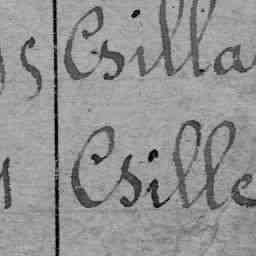 Csilla
Csille